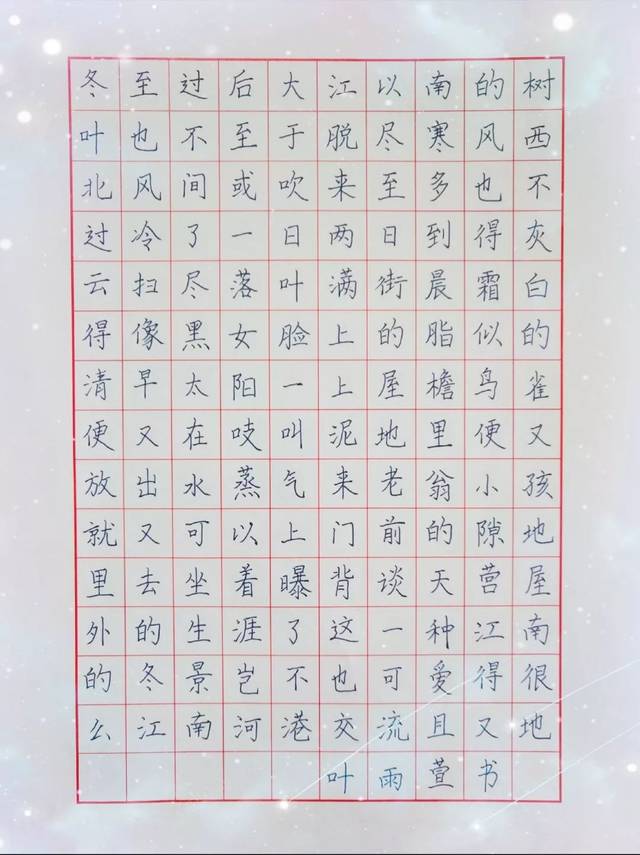 冬至过后大江以南的树
叶也不至于脱尽寒风西
北风间或吹来至多也不
过冷了一日两日到得灰
云扫尽落叶满街晨霜白
得像黑女脸上的脂似的
清早太阳一上屋檐鸟雀
便又在吱叫泥地里便又
放出水蒸气来老翁小孩
就又可以上门前的隙地
里去坐着曝背谈天营屋
外的生涯了这一种江南
的冬景岂不也可爱得很
么江南河港交流且又地
叶雨萱书